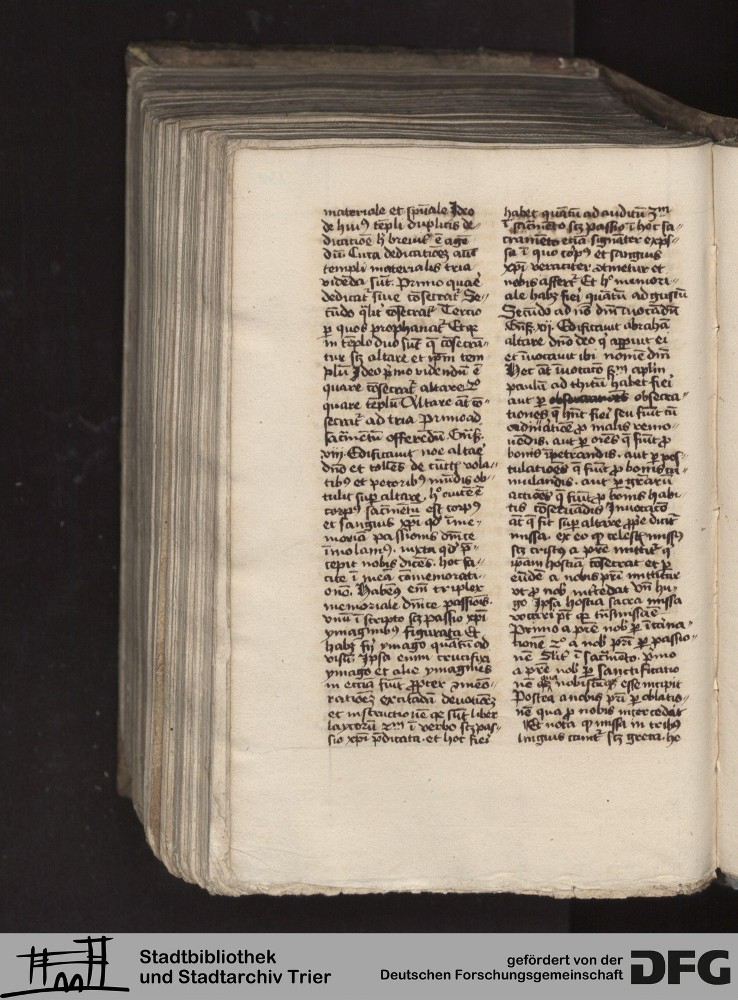 materiale et spūale Ideo
de huiꝰ tēpli duplicis de-
dicatiōe hꝰ breuit̄ ē age
dū Circa dedicatiōeȝ aūt
templi materialis tria
vidēda sūt. Primo quar̄
dedicat̄ siue cōsecrat̄ Se-
cūdo qͣlit̄ cōsecrat̄ Tercio
ꝑ quos prophanat̄ Et qꝛ
in tēplo duo sūt q̄ cōsecrā-
tur sȝ altare et ip̄m tem
plū Ideo pͥmo vidēndū ē
quare cōsecrat̄ altare 2o
quare tēplū Altare at̄ cō-
secrat̄ ad tria Primo ad
sacͣmētū offerēdū Gn̄s.
viij. Edificauit noe altar̄
dn̄o et tollēs de cūctꝭ vola-
tibꝰ et pecoribꝰ mūdis ob-
tulit suꝑ altare. hͦ autē ē
corpꝰ sacͣmētū est corpꝰ
et sanguis xp̄i qd̄ ī me-
moriā passionis dn̄ice
īmolamꝰ. iuxta qd̄ p̄-
cepit nobis dicēs. hoc fa-
cite ī meā cōmemorati-
onē. Habemꝰ em̄ triplex
memoriale dn̄ice passiōis.
vnū ī scripto sȝ passio xp̄i
ymaginibꝰ figurata Et
habȝ fi͛i ymago quātū ad
visū Ipsa enim crucifixi
ymago et alie ymagines
in eccīa fiūt ꝓpter ꝯmēo-
rationeȝ excitādā deuotiōeȝ
et instructionē qꝛ sūt liber
laycoꝝ 2m ī verbo sȝ pas-
sio xp̄i p̄dicata. et hoc fieri
habet quātū ad auditū 3m
ī sacͣmēto sȝ passio ī hoc sa-
cramēto etiā signāter exp̄s-
sa ī quo corpꝰ et sanguis
xp̄i veraciter ꝯtinetur et
nobis affert̄ Et hͦ memori-
ale habȝ fieri quātū ad gustū
Secūdo ad nōē dn̄i īuocādū
Gn̄s. xij. Edificauit abrahā
altare dn̄o deo qͥ apꝑuit ei
et īuocauit ibi nomē dn̄i
Hec at̄ īuocatio sm̄ apl̄m
paulū ad thitū habet fieri
aut ꝑ obsecra-
tiones q̄ hn̄t fieri seu fiūt cū
ꝓ malis remo-
uēdis. aut ꝑ or̄ōes q̄ fiūt ꝓ
bonis īpetrandis. aut ꝑ pos-
tulatiōes q̄ fiūt ꝓ bonis
aut ꝑ gr̄aꝝ
actiōes q̄ fiūt ꝓ bonis habi-
tis cōseruādis Inuocatō
at̄ q̄ fit suꝑ altare ꝓpe dicit̄
missa. ex eo qͥ celestꝭ missꝰ
sȝ cristꝰ a pr̄e mittit̄ qͥ
ip̄am hostiā cōsecrat et ꝑ
eūdē a nobis pr̄i mittitur
vt ꝓ nob̄ īt̄cedat vn̄ hu-
go Ipsa hostia sacra missa
vocari pt̄ qꝛ tn̄smissa ē
Primo a pr̄e nob̄ ꝑ īcarna-
tionē 2o a nob̄ pr̄i ꝑ passio-
nē Silr̄ ī sacͣmēto. pͥmo
a pr̄e nob̄ ꝑ sanctificatio
nē qua nobiscū esse incipit
Postea a nobis pr̄i ꝑ oblatio-
nē qua ꝓ nobis intercedit
Et nota qͥ missa in tribꝰ
linguis cantat̄ sȝ greca. he
Stadtbibliothek
und Stadtarchiv Trier
gefördert von der
Deutschen Forschungsgemeinschaft
DFG